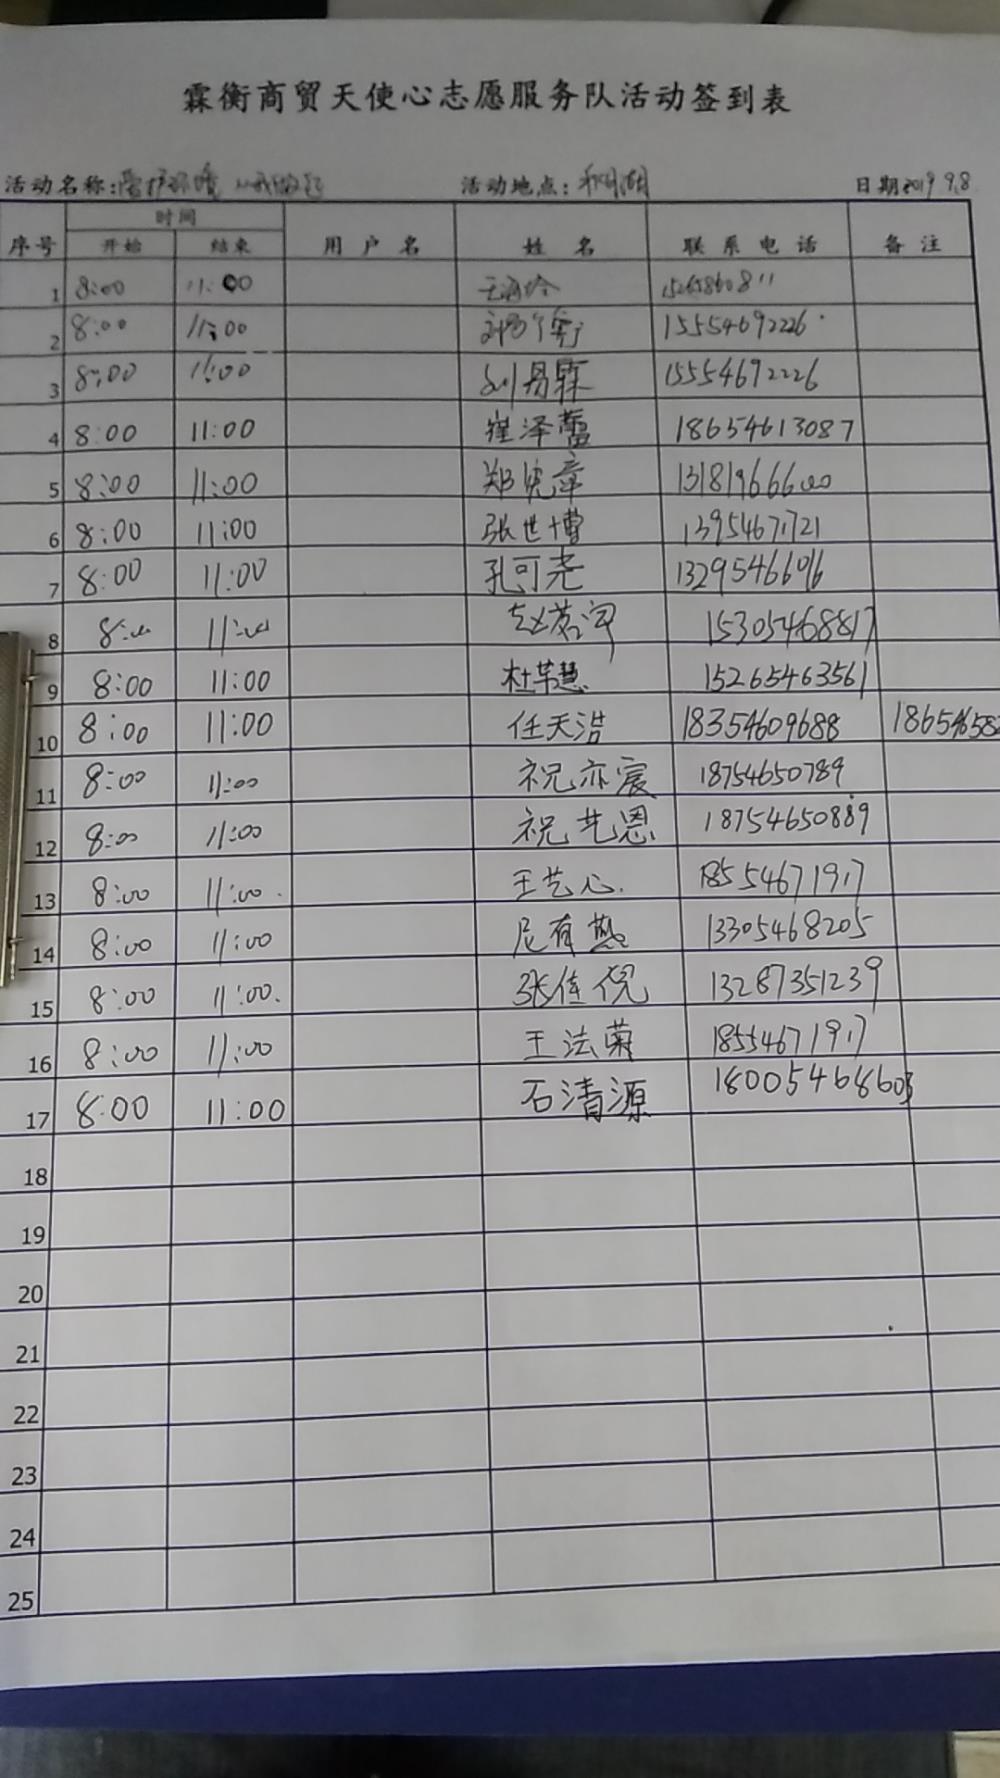 霖衡商贸天使心志愿服务队活动签到表
活动名称:爱护环境 从我做起 活动地点: 明湖 日期2019.9.8
时间
序号 开始 结束 用户名 姓名 联系电话 备注
1 8:00 11:00
2 8:00 11:00 15554692226
3 8:00 11:00 刘易霖 15554692226
4 8:00 11:00 崔泽蕾 18654613087
5 8:00 11:00 郑宪章 13181966600
6 8:00 11:00 张世博 13954671721
7 8:00 11:00 孔可尧 13295466016
8 8:00 11:00 赵若宇 15305468817
9 8:00 11:00 杜芊慧 15265463561
10 8:00 11:00 任天浩 18354609688 18654658
11 8:00 11:00 祝亦宸 18754650789
12 8:00 11:00 祝艺恩 18754650889
13 8:00 11:00 王艺心 18554671917
14 8:00 11:00 尼有燕 13305468205
15 8:00 11:00 张佳倪 13287351239
16 8:00 11:00 王法菊 18554671917
17 8:00 11:00 石清源 18005468603
18
19
20
21
22
23
24
25